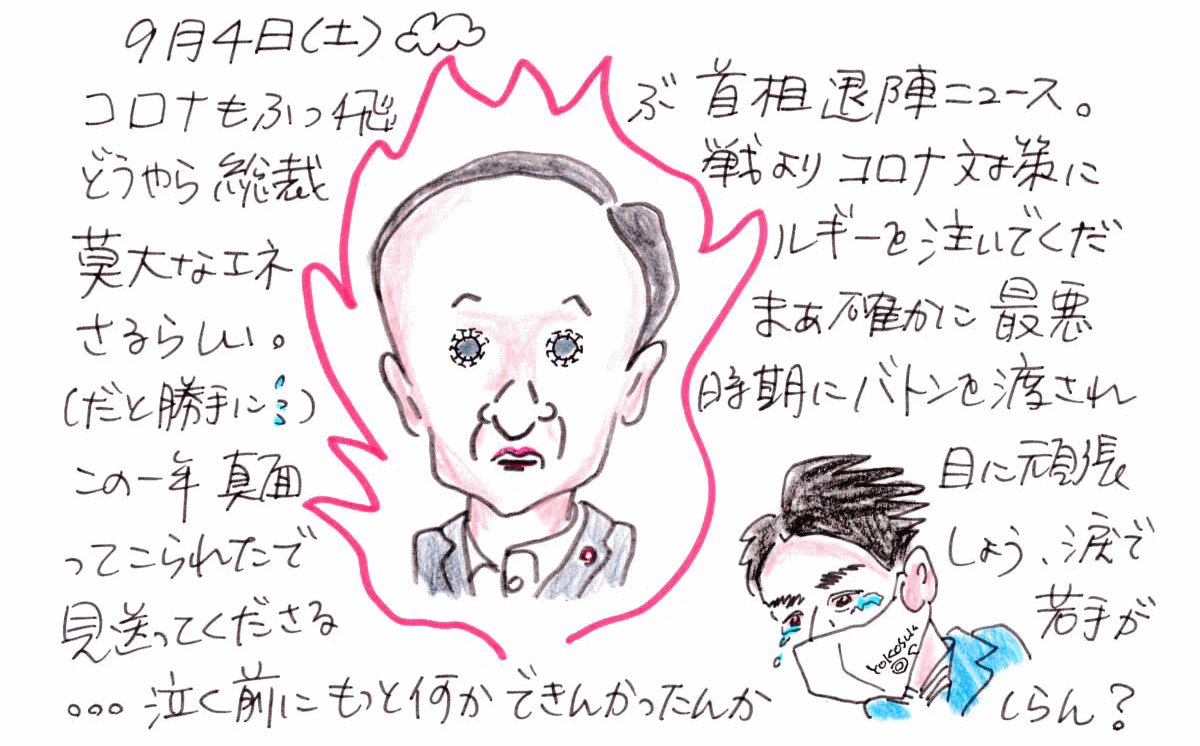 9月4日(土)
コロナもふっ飛ぶ首相退陣ニュース。
どうやら総裁戦よりコロナ対策に
莫大なエネルギーを注いでくだ
さるらしい。まあ確かに最悪
(だと勝手に…)時期にバトンを渡され
この一年真面目に頑張
ってこられたでしょう、涙で
見送ってくださる若手が
...泣く前にもっと何かできんかったんかしらん?
YOKOSUKA